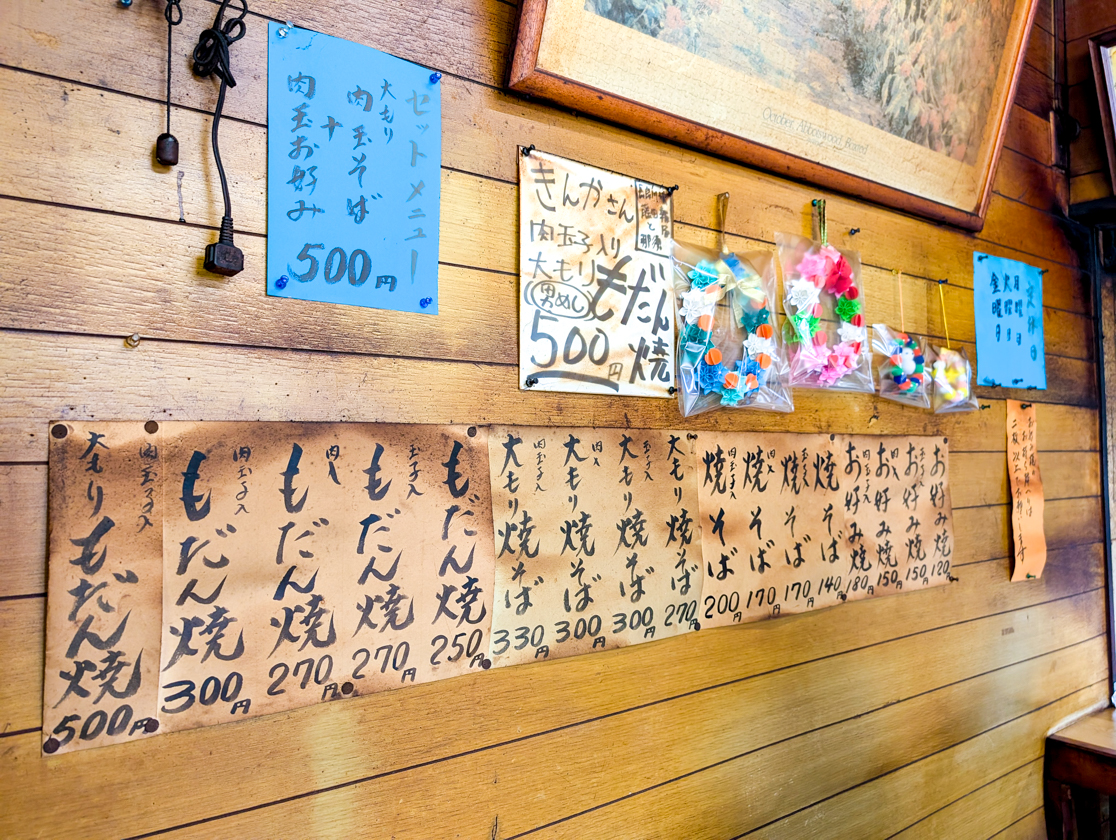 セットメニュー
大もり
肉玉そば
+
肉玉お好み
500円
きんかさん
肉玉子入り
大もり
男めし
もだん焼
500円
October, Abbotswood
定休日
月曜日
火曜日
金曜日
お好み焼 120円
お好み焼 150円
肉入
お好み焼 150円
肉玉子入
お好み焼 180円
焼そば 140円
焼そば 170円
肉入
焼そば 170円
肉玉子入
焼そば 200円
大もり焼そば 270円
玉子入
大もり焼そば 300円
肉入
大もり焼そば 300円
肉玉子入
大もり焼そば 330円
もだん焼 250円
玉子入
もだん焼 270円
肉入
もだん焼 270円
肉玉子入
もだん焼 300円
肉玉子入
大もりもだん焼 500円